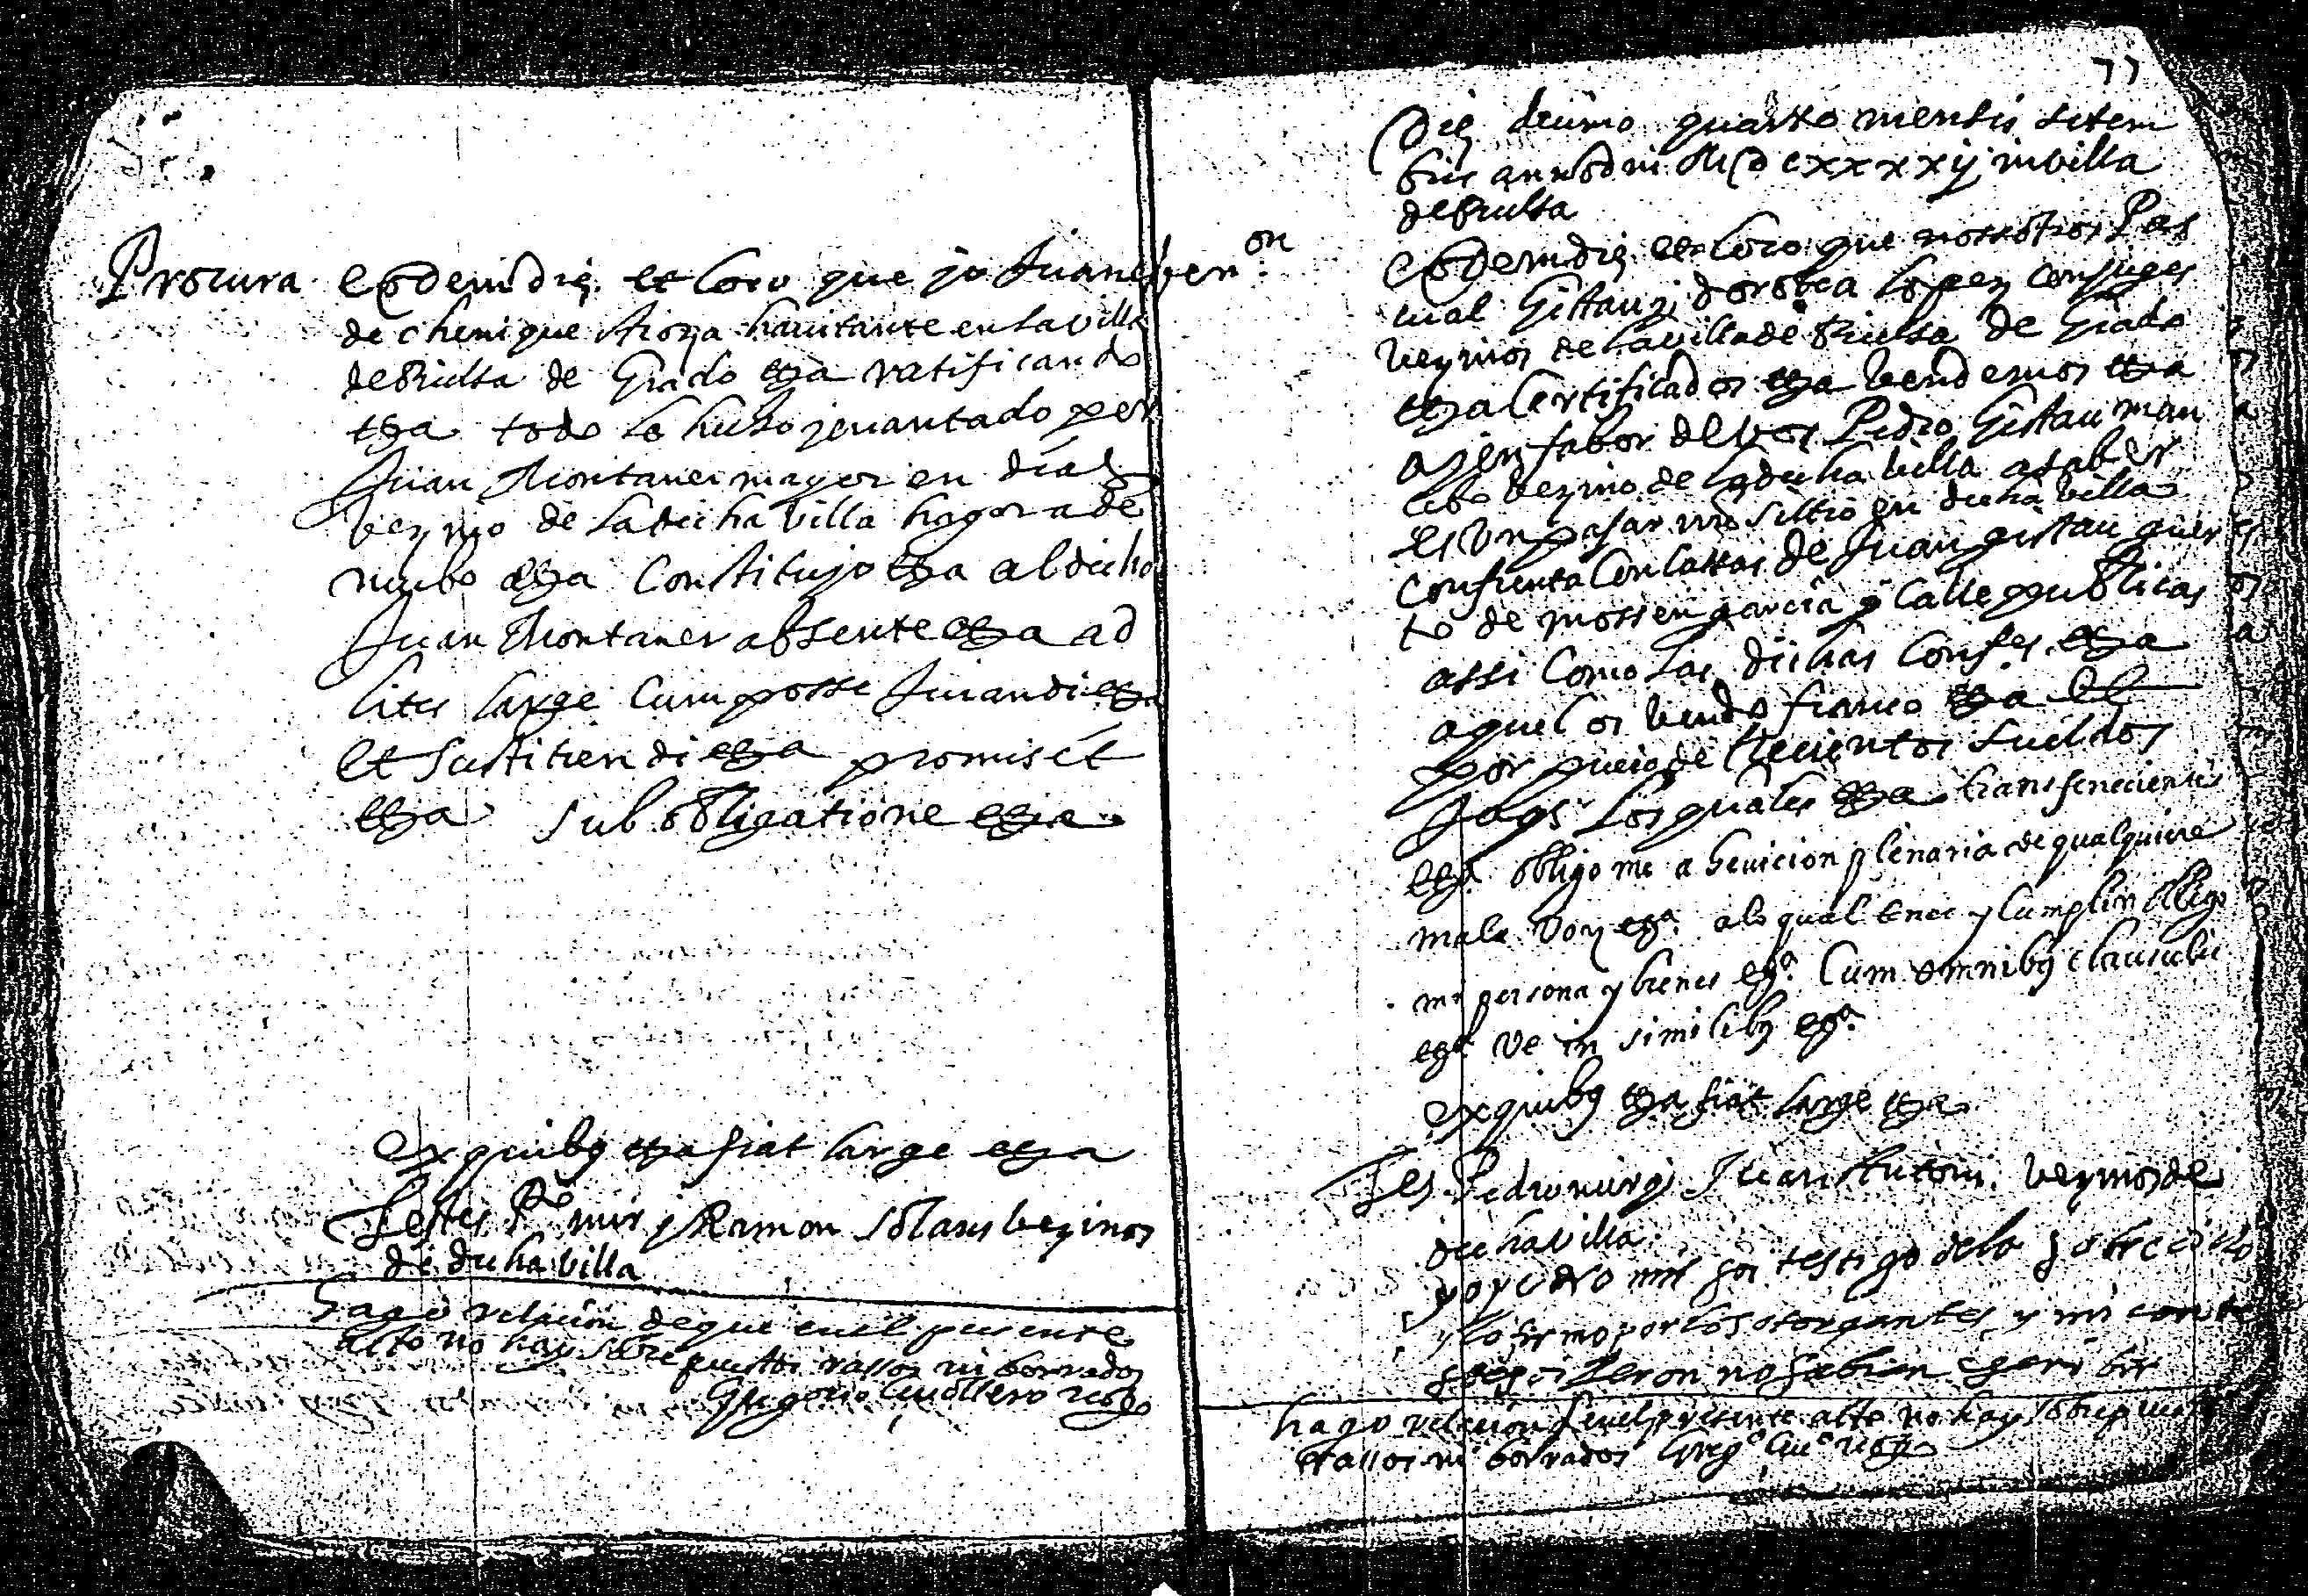 Procura
Eodem die et loco que jo Juan
de chenique Aioza hauitante en la villa
de Biulsa de Grado etza ratificando
etza todo lo hecho jenantado per
Juan Montaner mayor en dias
vezino de la dicha villa hagora de
nuebo etza Constitujo etza al dicho
Juan Montaner absente etza ad
lites large cum posse Jurandi etza
et sustituendi etza promiset
etza sub obligatione etza
ex quibus etza fiat large etza
Testes Po mur y Ramon Solans bezinos
de dicha villa
hago relacion de que en el presente
acto no hay sobre puestos rassos ni borrados
Gregorio
77
Die decimo quarto mensis setem
bris anno dni MDCxxxxij in villa
de Biulsa
Eodem die et loco que nossotros Pas
cual Gistau y dorotea lopez conjuges
vezinos de la villa de Biulsa de Grado
etza Certificados etza bendemos etza
a j en fabor de vos Pedro Gistau man
cebo vezino de la dicha villa a saber
es Un pajar nro sittio en dicha villa
Confrenta Con cassas de Juan gistau guer
to de mossen garcia y Calle publicas
assi Como las dichas Confes etza
aquel os bendo franco etza
por precio de trecientos sueldos
Jaqs los quales etza transferecientes
etza obligo me a heuicion plenaria de qualquiere
mala voz etza a lo qual tener y Cumplir obligo
mi persona y bienes etza Cum omnibus clausulis
etza ut in similibus etza
ex quibus etza fiat large etza
Tes Pedro mur y Juan Antoni vezinos de
dicha villa
yo pedro mur soi testigo de lo sobre dicho
y lo firmo por los otorgantes y mi conte
que dixeron no sabian escribir
hago relacion q en el presente acto no hay sobre puestos
rassos ni borrados Grego